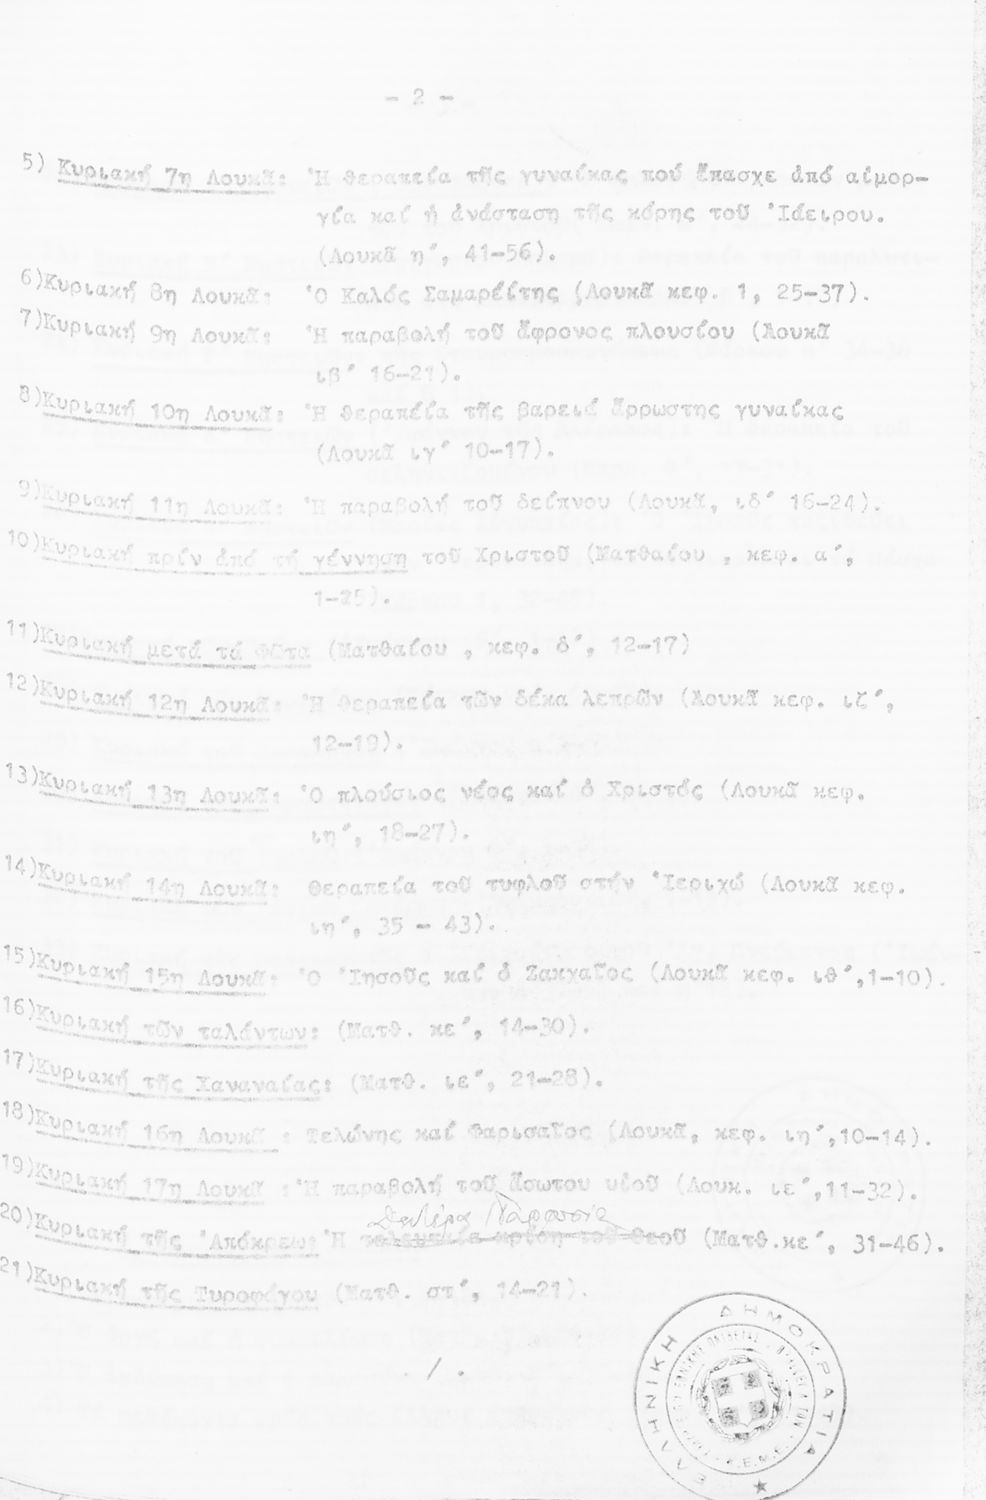 - 2 -
5) Κυριακή 7η Λουκᾶ: Ἡ θεραπεία τῆς γυναίκας πού ἔπασχε ἀπό αἱμορ-
γία καί ἡ ἀνάσταση τῆς κόρης τοῦ Ἰάειρου.
(Λουκᾶ η΄, 41-56).
6)Κυριακή 8η Λουκᾶ: Ὁ Καλός Σαμαρείτης (Λουκᾶ κεφ. 1, 25-37).
7)Κυριακή 9η Λουκᾶ: Ἡ παραβολή τοῦ ἄφρονος πλουσίου (Λουκᾶ
ιβ΄ 16-21).
8)Κυριακή 10η Λουκᾶ: Ἡ θεραπεία τῆς βαρειά ἄρρωστης γυναίκας
(Λουκᾶ ιγ΄ 10-17).
9)Κυριακή 11η Λουκᾶ: Ἡ παραβολή τοῦ δείπνου (Λουκᾶ, ιδ΄ 16-24).
10)Κυριακή πρίν ἀπό τή γέννηση τοῦ Χριστοῦ (Ματθαίου , κεφ. α΄,
1-25).
11)Κυριακή μετά τά Φῶτα (Ματθαίου , κεφ. δ΄, 12-17)
12)Κυριακή 12η Λουκᾶ: Ἡ θεραπεία τῶν δέκα λεπρῶν (Λουκᾶ κεφ. ιζ΄,
12-19).
13)Κυριακή 13η Λουκᾶ: Ὁ πλούσιος νέος καί ὁ Χριστός (Λουκᾶ κεφ.
ιη΄, 18-27).
14)Κυριακή 14η Λουκᾶ: Θεραπεία τοῦ τυφλοῦ στήν Ἱεριχώ (Λουκᾶ κεφ.
ιη΄, 35 - 43).
15)Κυριακή 15η Λουκᾶ: Ὁ Ἰησοῦς καί ὁ Ζακχαῖος (Λουκᾶ κεφ. ιθ΄,1-10).
16)Κυριακή τῶν ταλάντων: (Ματθ. κε΄, 14-30).
17)Κυριακή τῆς Χαναναίας: (Ματθ. ιε΄, 21-28).
18)Κυριακή 16η Λουκᾶ : Τελώνης καί Φαρισαῖος (Λουκᾶ, κεφ. ιη΄,10-14).
19)Κυριακή 17η Λουκᾶ :Ἡ παραβολή τοῦ ἄσωτου υἱοῦ (Λουκ. ιε΄,11-32).
Δευτέρα Παρουσία
20)Κυριακή τῆς Ἀπόκρεω: Ἡ τελευταία κρίση τοῦ Θεοῦ (Ματθ.κε΄, 31-46).
21)Κυριακή τῆς Τυροφάγου (Ματθ. στ΄, 14-21).
/.
ΕΛΛΗΝΙΚΗ ΔΗΜΟΚΡΑΤΙΑ
Κ.Ε.Μ.Ε.